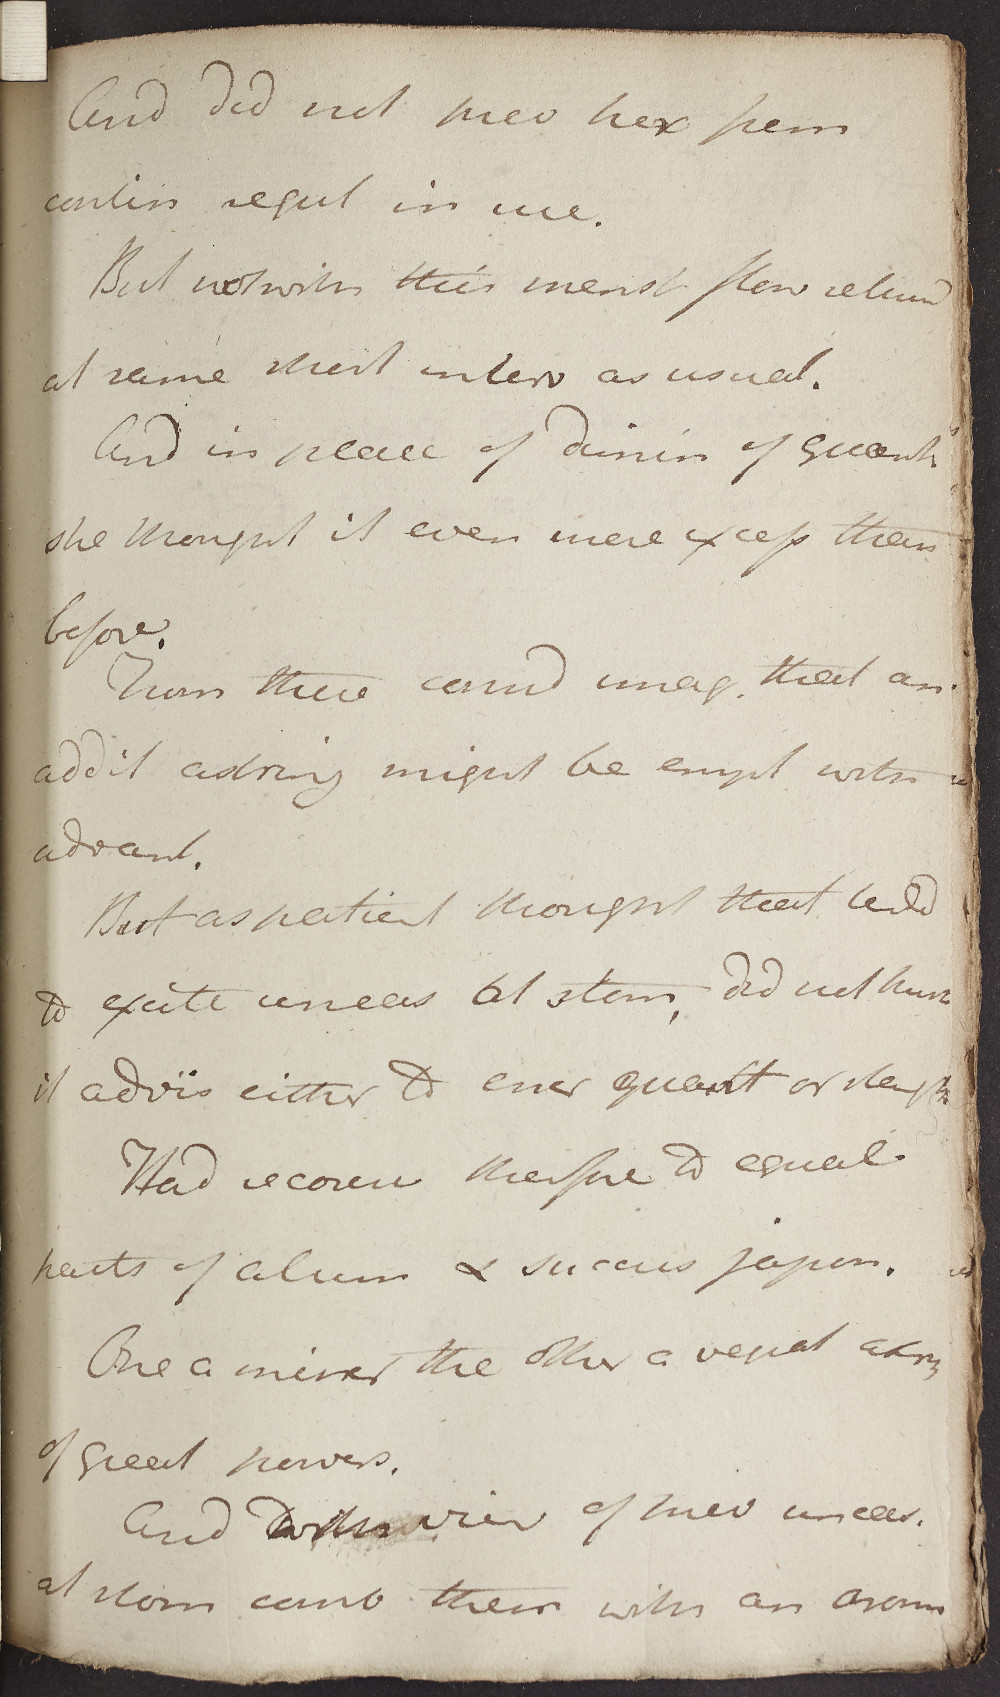 And did not prev her from
contin regul in use.
But notwith this menst flow return
at same short interv as usual.
And in place of dimin of quanti
she thought it even more excess than
before.
From these cound imag. that an
addit astring might be empl with
advant.
But as patient thought that tend
to excite uneas at stom, did not think
it advis either to encr quantt or length
Had recours therfore to equal
parts of alum & succus japon.
One a miner the other a veget astrin
of great powers.
And with view of prev uneas.
at stom comb them with an arom